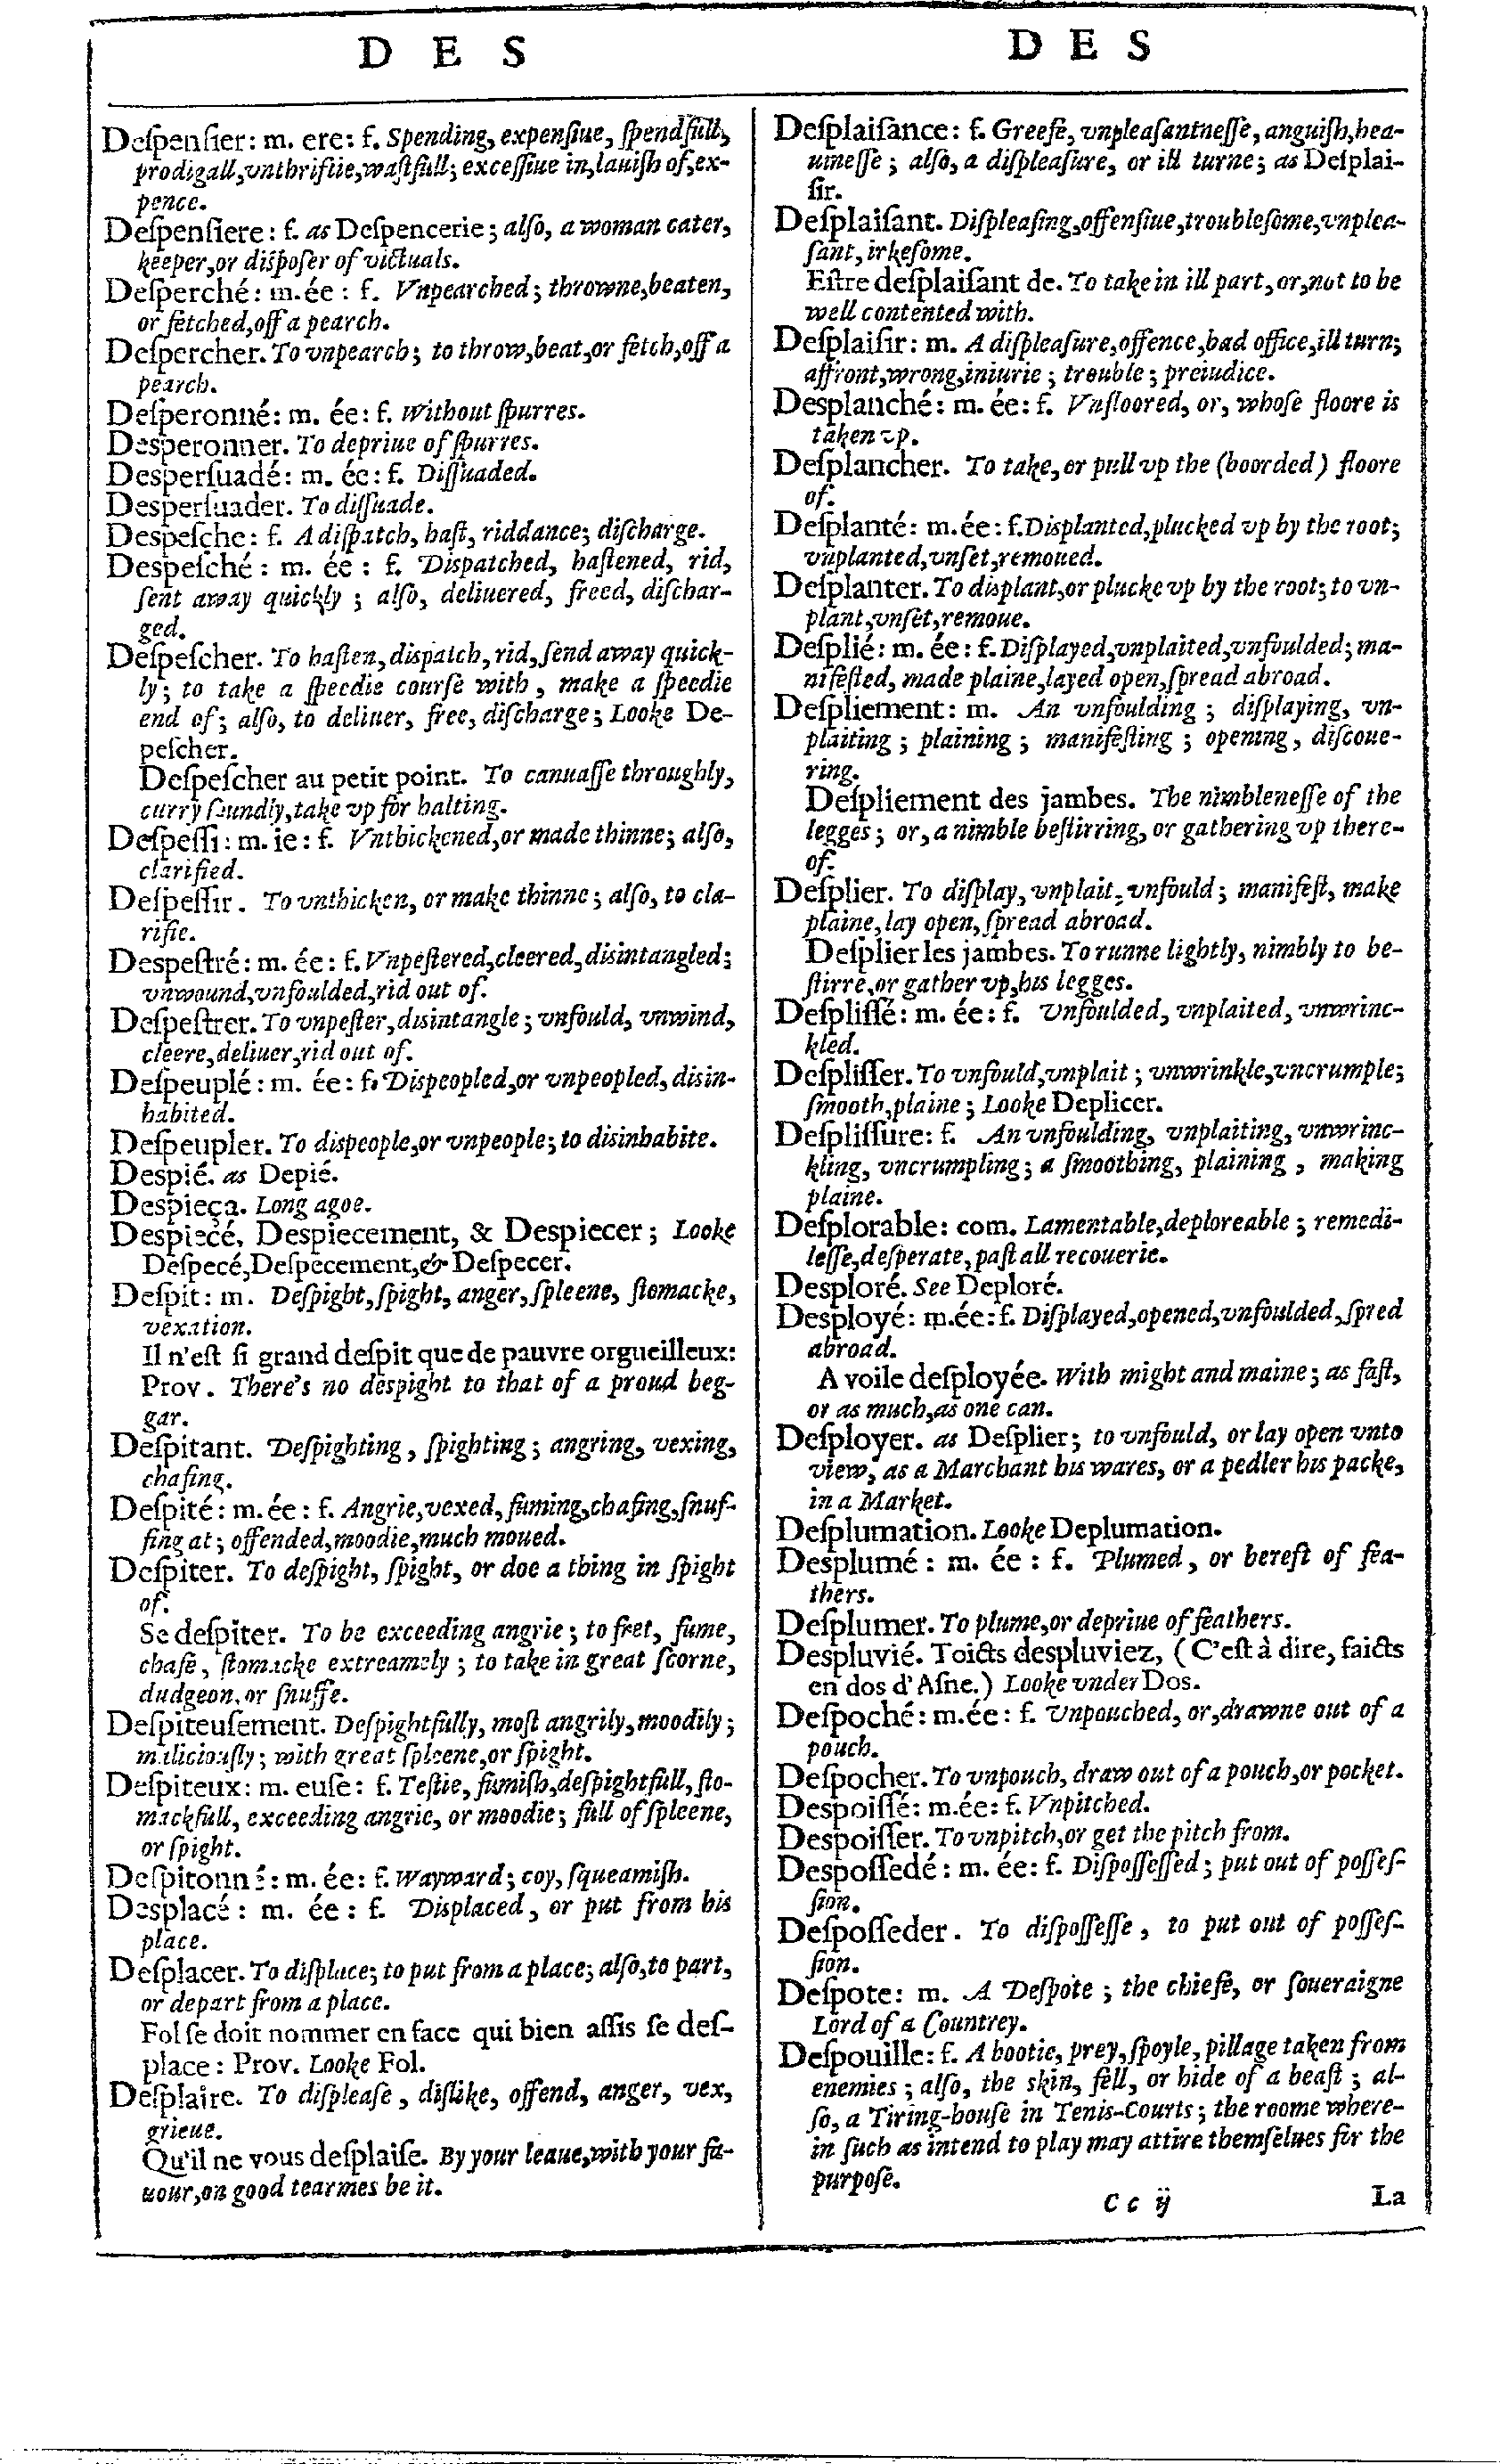 D E S
Deſpenſier: m. ere: f. Spending, expenſiue, ſpendfull,
prodigall, vnthriftie, waſtfull; exceſſiue in, lauiſh of, ex-
pence.
Deſpenſiere: f. as Deſpencerie; alſo, a woman cater,
keeper, or diſpoſer of victuals.
Deſperché: m. ée: f. Vnpearched; throwne, beaten,
or fetched, off a pearch.
Deſpercher. To vnpearch; to throw, beat, or fetch, off a
pearch.
Deſperonné: m. ée: f. Without ſpurres.
Desperonner. To depriue of ſpurres.
Desperſuadé: m. ée: f. Diſſuaded.
Desperſuader. To diſſuade.
Despeſche: f. A diſpatch, haſt, riddance; diſcharge.
Despeſché: m. ée: f. Dispatched, haſtened, rid,
ſent away quickly; alſo, deliuered, freed, diſchar-
ged.
Deſpeſcher. To haſten, dispatch, rid, ſend away quick-
ly; to take a ſpeedie courſe with, make a ſpeedie
end of; alſo, to deliuer, free, diſcharge; Looke De-
peſcher.
Deſpeſcher au petit point. To canuaſſe throughly,
curry ſoundly, take vp for halting.
Deſpeſſi: m. ie: f. Vnthickened, or made thinne; alſo,
clarified.
Deſpeſſir. To vnthicken, or make thinne; alſo, to cla-
rifie.
Despeſtré: m. ée: f. Vnpeſtered, cleered, disintangled;
vnwound, vnfoulded, rid out of.
Deſpeſtrer. To vnpeſter, disintangle; vnfould, vnwind,
cleere, deliuer, rid out of.
Deſpeuplé: m. ée: f. Dispeopled, or vnpeopled, disin-
habited.
Deſpeupler. To dispeople, or vnpeople; to disinhabite.
Despié. as Depié.
Despieça. Long agoe.
Despiecé, Despiecement, & Despiecer; Looke
Deſpecé, Deſpecement, & Deſpecer.
Deſpit: m. Deſpight, ſpight, anger, ſpleene, ſtomacke,
vexation.
Il n'eſt ſi grand deſpit que de pauvre orgueilleux:
Prov. There's no despight to that of a proud beg-
gar.
Deſpitant. Deſpighting, ſpighting; angring, vexing,
chafing.
Deſpité: m. ée: f. Angrie, vexed, fuming, chafing, ſnuf-
fing at; offended, moodie, much moued.
Deſpiter. To deſpight, ſpight, or doe a thing in ſpight
of.
Se deſpiter. To be exceeding angrie; to fret, fume,
chafe, ſtomacke extreamely; to take in great ſcorne,
dudgeon, or ſnuffe.
Deſpiteuſement. Deſpightfully, moſt angrily, moodily;
maliciouſly; with great ſpleene, or ſpight.
Deſpiteux: m. euſe: f. Teſtie, fumiſh, deſpightfull, ſto-
mackfull, exceeding angrie, or moodie; full of ſpleene,
or ſpight.
Deſpitonné: m. ée: f. Wayward; coy, ſqueamiſh.
Desplacé: m. ée: f. Displaced, or put from his
place.
Deſplacer. To diſplace; to put from a place; alſo, to part,
or depart from a place.
Fol ſe doit nommer en face qui bien aſſis ſe deſ-
place: Prov. Looke Fol.
Deſplaire. To diſpleaſe, diſlike, offend, anger, vex,
grieue.
Qu'il ne vous deſplaiſe. By your leaue, with your fa-
uour, on good tearmes be it.
D E S
Deſplaiſance: f. Greefe, vnpleaſantneſſe, anguiſh, hea-
uineſſe; alſo, a diſpleaſure, or ill turne; as Deſplai-
ſir.
Deſplaiſant. Diſpleaſing, offenſiue, troubleſome, vnplea-
ſant, irkeſome.
Eſtre deſplaiſant de. To take in ill part, or, not to be
well contented with.
Deſplaiſir: m. A diſpleaſure, offence, bad office, ill turn;
affront, wrong, iniurie; trouble; preiudice.
Desplanché: m. ée: f. Vnfloored, or, whoſe floore is
taken vp.
Deſplancher. To take, or pull vp the (boorded) floore
of.
Deſplanté: m. ée: f. Displanted, plucked vp by the root;
vnplanted, vnſet, remoued.
Deſplanter. To displant, or plucke vp by the root; to vn-
plant, vnſet, remoue.
Deſplié: m. ée: f. Diſplayed, vnplaited, vnfoulded; ma-
nifeſted, made plaine, layed open, ſpread abroad.
Deſpliement: m. An vnfoulding; diſplaying, vn-
plaiting; plaining; manifeſting; opening, diſcoue-
ring.
Deſpliement des jambes. The nimbleneſſe of the
legges; or, a nimble beſtirring, or gathering vp there-
of.
Deſplier. To diſplay, vnplait, vnfould; manifeſt, make
plaine, lay open, ſpread abroad.
Deſplier les jambes. To runne lightly, nimbly to be-
ſtirre, or gather vp, his legges.
Deſpliſſé: m. ée: f. Vnfoulded, vnplaited, vnwrinc-
kled.
Deſpliſſer. To vnfould, vnplait; vnwrinkle, vncrumple;
ſmooth, plaine; Looke Deplicer.
Deſpliſſure: f. An vnfoulding, vnplaiting, vnwrinc-
kling, vncrumpling; a ſmoothing, plaining, making
plaine.
Deſplorable: com. Lamentable, deploreable; remedi-
leſſe, deſperate, paſt all recouerie.
Desploré. See Deploré.
Desployé: m. ée: f. Diſplayed, opened, vnfoulded, ſpred
abroad.
A voile deſployée. With might and maine; as faſt,
or as much, as one can.
Deſployer. as Deſplier; to vnfould, or lay open vnto
view, as a Marchant his wares, or a pedler his packe,
in a Market.
Deſplumation. Looke Deplumation.
Desplumé: m. ée: f. Plumed, or bereft of fea-
thers.
Deſplumer. To plume, or depriue of feathers.
Despluvié. Toicts despluviez, (C'eſt à dire, faicts
en dos d'Aſne.) Looke vnder Dos.
Deſpoché: m. ée: f. Vnpouched, or, drawne out of a
pouch.
Deſpocher. To vnpouch, draw out of a pouch, or pocket.
Despoiſſé: m. ée: f. Vnpitched.
Despoiſſer. To vnpitch, or get the pitch from.
Despoſſedé: m. ée: f. Diſpoſſeſſed; put out of poſſeſ-
ſion.
Deſpoſſeder. To diſpoſſeſſe, to put out of poſſeſ-
ſion.
Deſpote: m. A Deſpote; the chiefe, or ſoueraigne
Lord of a Countrey.
Deſpouille: f. A bootie, prey, ſpoyle, pillage taken from
enemies; alſo, the skin, fell, or hide of a beaſt; al-
ſo, a Tiring-houſe in Tenis-Courts; the roome where-
in ſuch as intend to play may attire themſelues for the
purpoſe.
C c ij
La